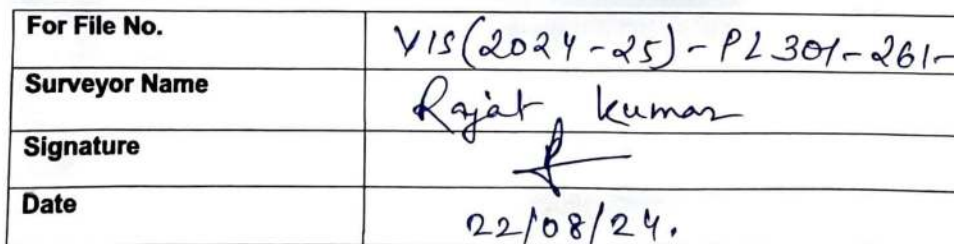 For File No. VIS(2024-25)-PL301-261-
Surveyor Name Rajat Kumar
Signature
Date 22/08/24.